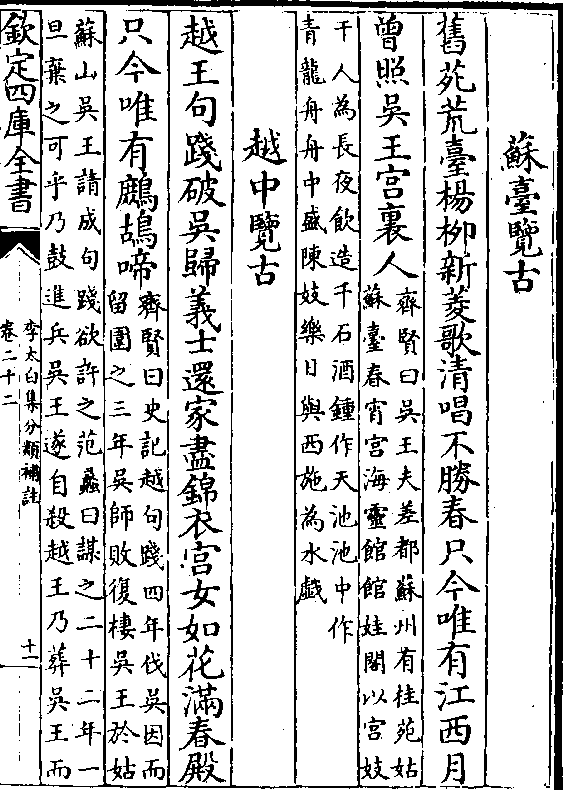 蘇臺覽古
舊苑荒臺楊柳新菱歌清唱不勝春只今唯有江西月
曾照吳王宮裏人
齊賢曰吳王夫差都蘇州有桂苑姑
蘇臺春宵宮海靈館館娃閣以宮妓
千人為長夜飲造千石酒鍾作天池池中作
青龍舟舟中盛陳妓樂日與西施為水戲
越中覽古
越王句踐破吳歸義士還家盡錦衣宮女如花滿春殿
只今唯有鷓鴣啼
齊賢曰史記越句踐四年伐吳因而
留圍之三年吳師敗復棲吳王於姑
蘇山吳王請成句踐欲許之范蠡曰謀之二十二年一
旦棄之可乎乃鼓進兵吳王遂自殺越王乃葬吳王而
欽定四庫全書
李太白集分類補註
卷二十二
十一